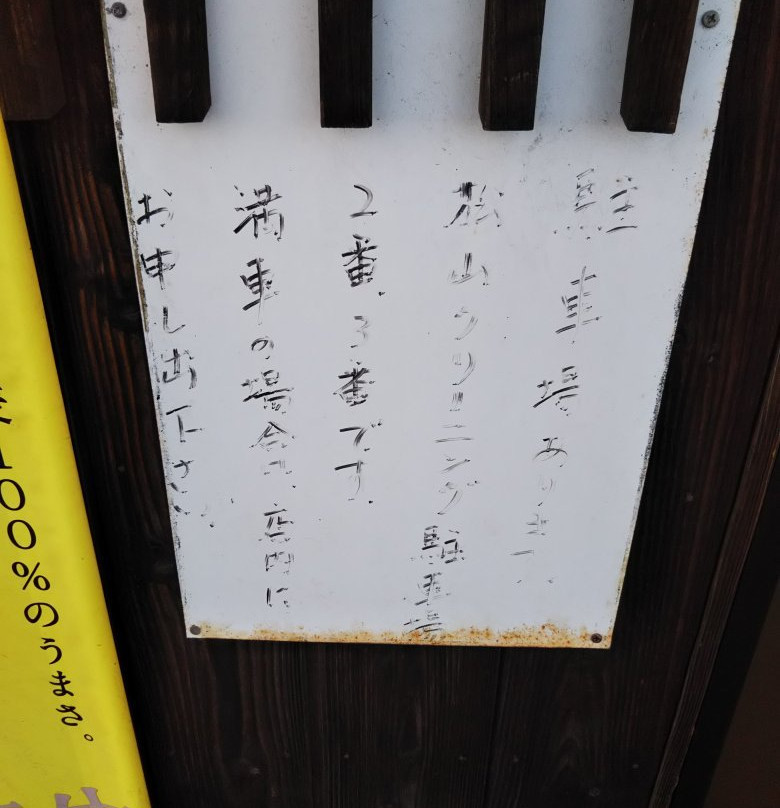 駐車場あります。
松山クリーニング駐車場
2番、3番です。
満車の場合は、店内に
お申し出下さい。
100%のうまさ。